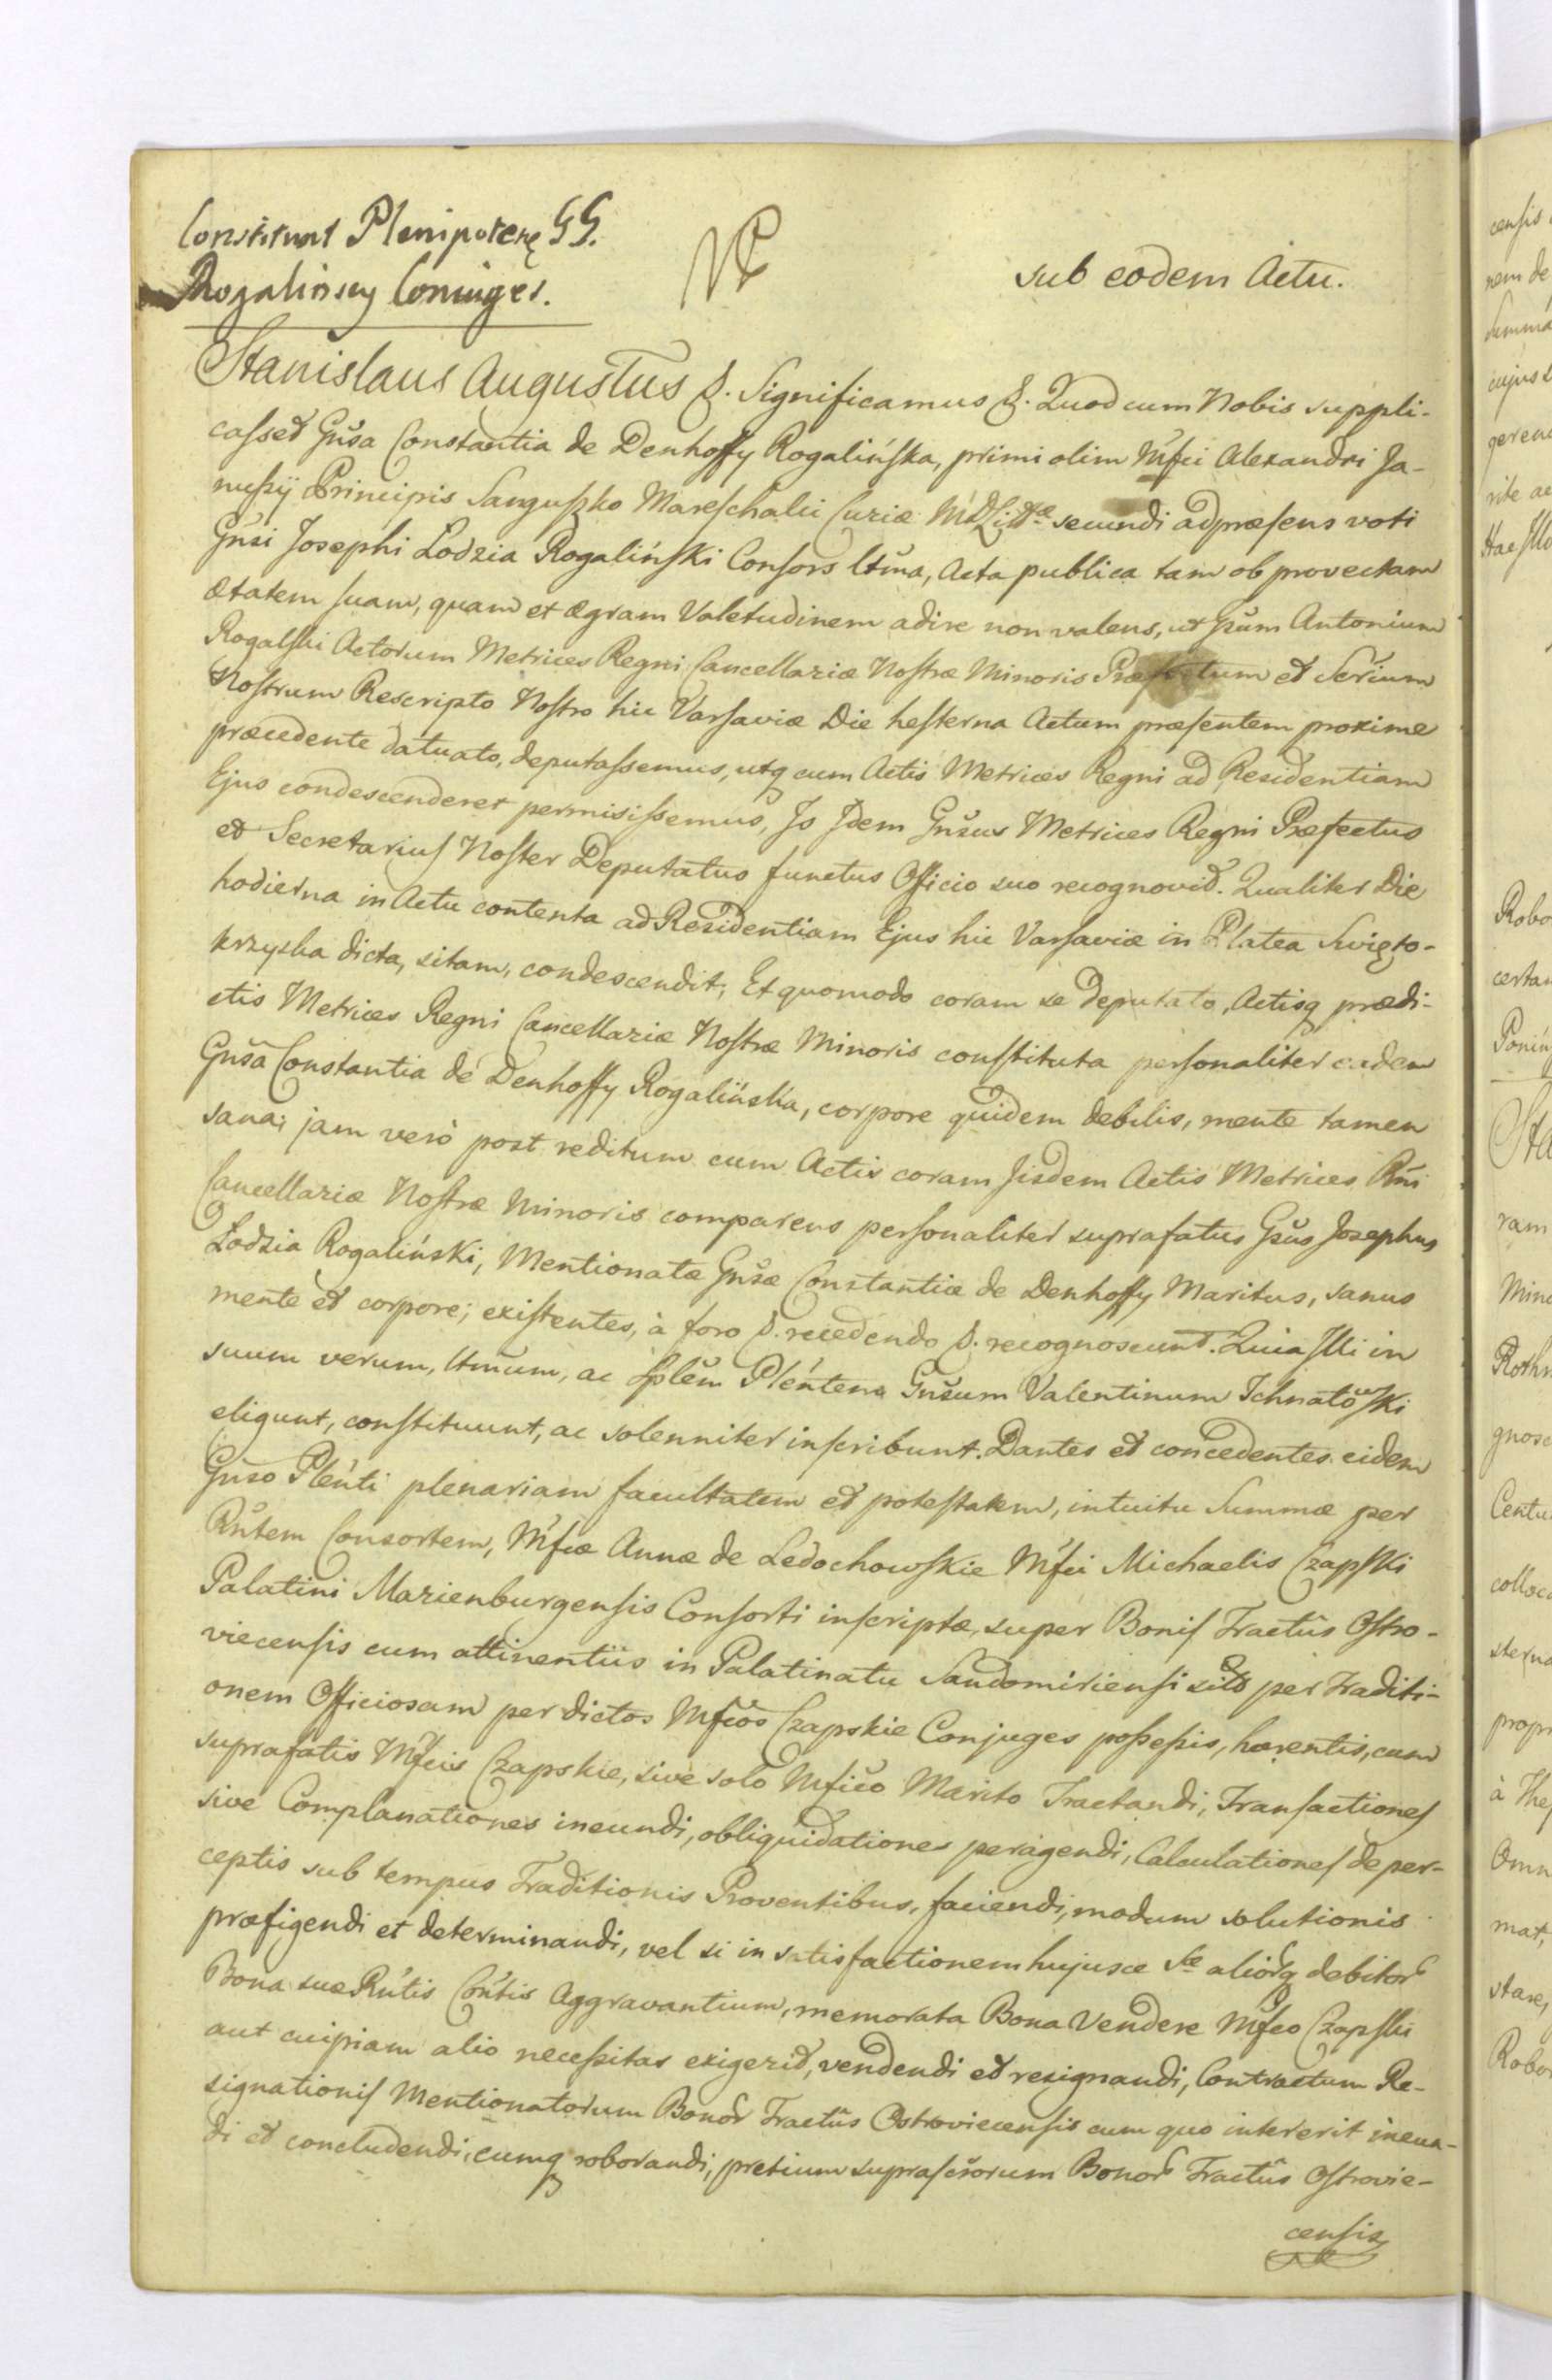 Constituunt Plenipotenę GG.
Rogalinscy Coniuges.
sub eodem Actu.
Stanislaus Augustus &. Significamus &. Quod cum Nobis suppli-
casset Gn̆sa Constantia de Denhoffy Rogalińska, primi olim M̆fci Alexandri Ja-
nuszÿ Principis Sanguszko Mareschalci Curiæ M.D.Litt̆æ secundi ad præsens voti
Gn̆si Josephi Lodzia Rogaliński Consors lt̆ma, Acta publica tam ob provectam
ætatem suam, quam et ægram Valetudinem adire non valens, ut Gn̆sum Antonium
Rogalski Actorum Metrices Regni Cancellariæ Nostræ Minoris Præfectum et Scrium
Nostrum Rescripto Nostro hic Varsaviæ Die hesterna Actum præsentem proxime
præcedente datuato, deputassemus, utq cum Actis Metrices Regni ad Residentiam
Ejus condescenderet permisissemus, Is Idem Gn̆sus Metrices Regni Præfectus
et Secretarius Noster Deputatus functus Officio suo recognovit. Qualiter Die
hodierna in Actu contenta ad Residentiam Ejus hic Varsaviæ in Platea Swięto-
krzyska dicta, sitam, condescendit; Et quomodo coram se deputato, Actisq prædi-
ctis Metrices Regni Cancellariæ Nostræ Minoris constituta personaliter eadem
Gn̆sa Constantia de Denhoffy Rogalińska, corpore quidem debilis, mente tamen
sana; jam verò post reditum cum Actis coram Iisdem Actis Metrices Rn̆i
Cancellariæ Nostræ Minoris comparens personaliter suprafatus Gn̆sus Josephus
Lodzia Rogaliński, Mentionatæ Gn̆sæ Constantiæ de Denhoffy Maritus, sanus
mente et corpore; existentes, à foro &. recedendo &. recognoscunt. Quia Illi in
suum verum, lt̆mum, ac sp̆lem Plĕntem Gn̆sum Valentinum Ichnatowski
eligunt, constituunt, ac solenniter inscribunt. Dantes et concedentes eidem
Gn̆so Plĕnti plenariam facultatem et potestatem, intuitu Summæ per
Rn̆tem Consortem, M̆fcæ Annæ de Ledochowskie M̆fci Michaelis Czapski
Palatini Marienburgensis Consorti inscriptæ, super Bonis Tractûs Ostro-
viecensis cum attinentiis in Palatinatu Sandomiriensi sitis per Traditi-
onem Officiosam per dictos M̆fcos Czapskie Conjuges possessis, hærentis, cum
suprafatis M̆fcis Czapskie, sive solo M̆fico Marito Tractandi, Transactiones
sive Complanationes ineundi, obliquidationes peragendi, Calculationes de per-
ceptis sub tempus Traditionis Proventibus, faciendi, modum solutionis
præfigendi et determinandi, vel si in satisfactionem hujusce Sæ aliorq debitor
Bona suæ Rn̆tis Cŏntis Aggravantium, memorata Bona Vendere M̆fco Czapski
aut cuipiam alio necessitas exigerit, vendendi et resignandi, Contractum Re-
signationis Mentionatorum Bonor Tractûs Ostroviecensis cum quo intererit ineun-
di et concludendi, eumq roborandi, pretium suprascr̆orum Bonor Tractûs Ostrovie-
censis